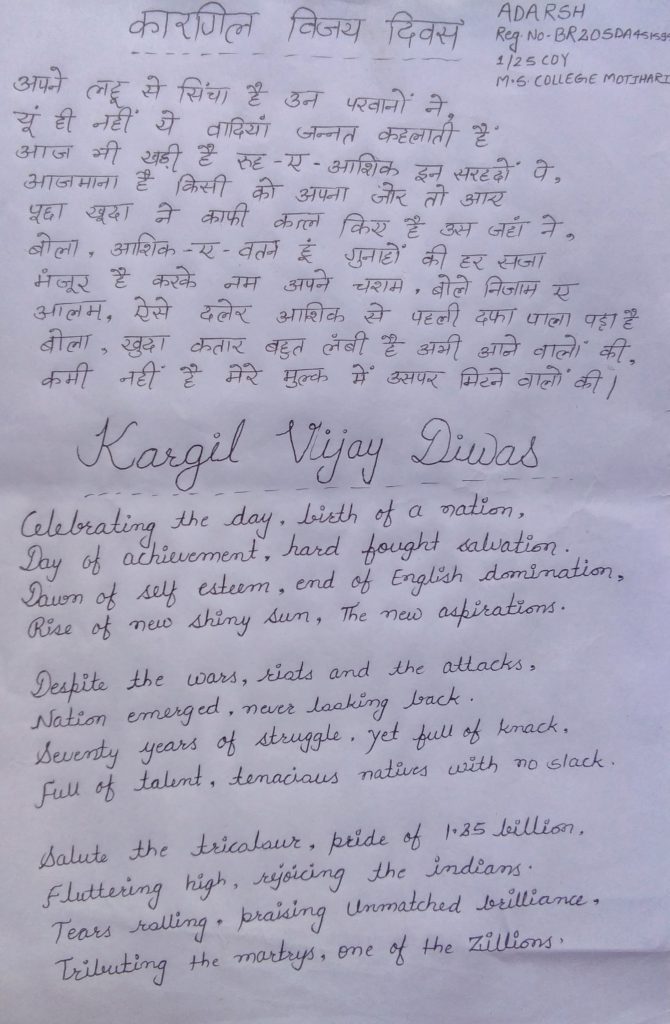 कारगिल विजय दिवस
ADARSH
Reg. No- BR20SDA451594
1/25 COY
M.S. COLLEGE MOTIHARI
अपने लहू से सिंचा है उन परवानों ने,
यूं ही नहीं ये वादियां जन्नत कहलाती है
आज भी खड़ी है रूह-ए-आशिक इन सरहदों पे,
आजमाना है किसी को अपना जोर तो आए
पूछा खूदा ने काफी कत्ल किए है उस जहां ने,
बोला, आशिक-ए-वतन हूं गुनाहों की हर सजा
मंजूर है करके नम अपने चशम, बोले निजाम ए
आलम, ऐसे दलेर आशिक से पहली दफा पाला पड़ा है
बोला, खुदा कतार बहुत लंबी है अभी आने वालों की,
कमी नहीं है मेरे मुल्क में उसपर मिटने वालों की।
Kargil Vijay Diwas
Celebrating the day, birth of a nation,
Day of achievement, hard fought salvation.
Dawn of self esteem, end of English domination,
Rise of new shiny sun, The new aspirations.
Despite the wars, riots and the attacks,
Nation emerged, never looking back.
Seventy years of struggle, yet full of knack,
Full of talent, tenacious natives with no slack.
Salute the tricolour, pride of 1.35 billion,
Fluttering high, rejoicing the indians.
Tears rolling, praising Unmatched brilliance,
Tributing the martrys, one of the Zillions.